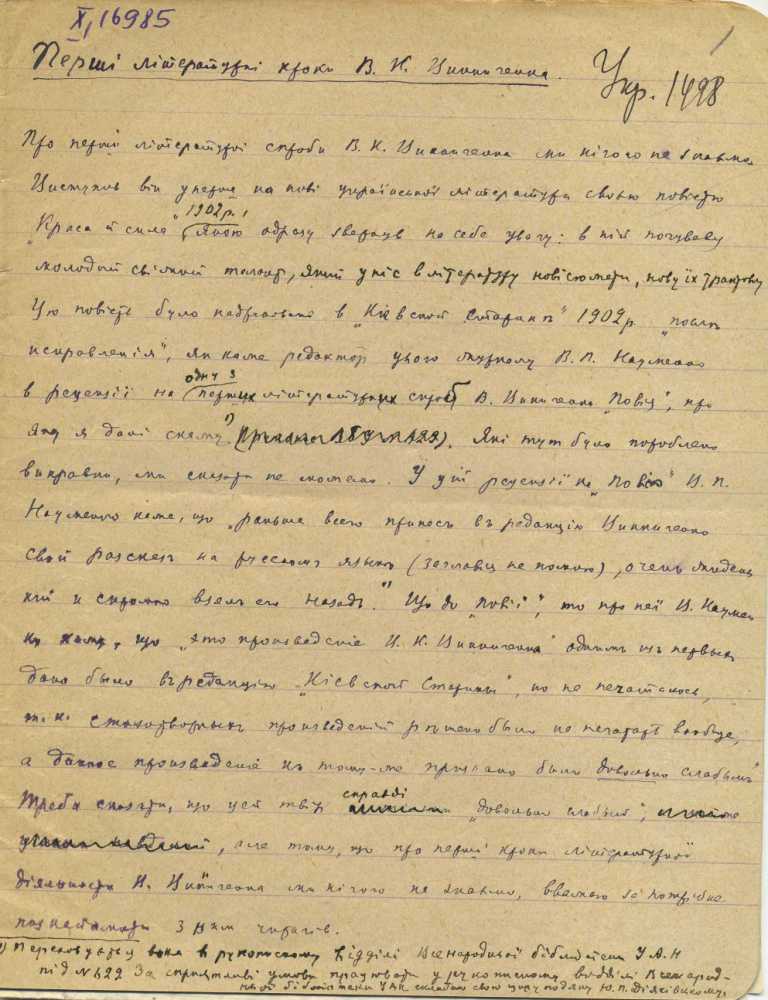 X, 16985
1
Перші літературні кроки В. К. Винниченка.
Укр. 1498
Про перші літературні спроби В. К. Винниченка ми нічого не знаємо
Виступив він уперше на ниві української літератури своєю повістю
1902 р.
"Краса й сила", якою одразу звернув на себе увагу: в ній почували
молодий свіжий талант, який уніс в літературу нові сюжети, нову їх трактовку
Цю повість було надруковано в "Кіевской Старинѣ" 1902 р. "послѣ
исправленія", як каже редактор цього журналу В. П. Науменко
одну з
в рецензії на перших літературних спроб В. Винниченка "Повія", про
яку я далі скажу 1). Які тут було пороблено
виправки, ми сказати не можемо. У цій рецензії на "Повію" В. П.
Науменко каже, що "раньше всего принесъ въ редакцію Винниченко
свой разсказъ на русскомъ языкѣ (заглавія не помню), очень
и скромно взялъ его назадъ." Що до "Повії", то про неї В. Наумен
ко каже, що "это произведеніе В. К. Винниченка однимъ изъ первыхъ
дано было въ редакцію "Кіевской Старины", но не печаталось,
т. к. стихотворныхъ произведеній рѣшено было не печатать вообще,
а данное произведеніе къ тому-же признано было довольно слабымъ"
справді
Треба сказати, що цей твір "довольно слабый",
, але тому, що про перші кроки літературної
діяльности В. Винниченка ми нічого не знаємо, вважаю за потрібне
познайомити з ним читачів.
1) Переховується вона в рукописному відділі Всенародньої бібліотеки УАН
під № 622 За сприятливі умови праці в рукописному відділі Всенарод-
ньої бібліотеки УАН складаю свою щиру подяку